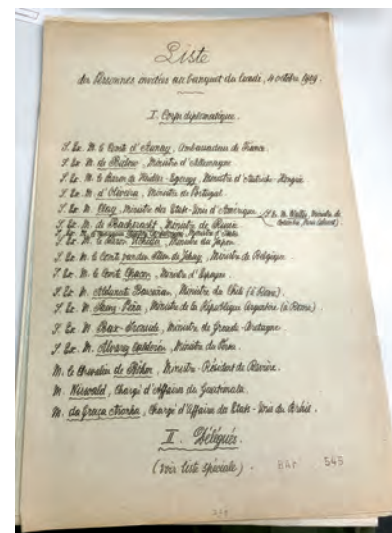 Liste
des Personnes invitées au banquet du lundi, 4 octobre 1909.
I. Corps diplomatique.
S. Ex. M. le Comte d'Aunay, Ambassadeur de France.
S. Ex. M. de Bülow, Ministre d'Allemagne
S. Ex. M. le Baron de Heidler-Egeregg, Ministre d'Autriche-Hongrie
S. Ex. M. d'Oliveira, Ministre de Portugal.
S. Ex. M. Clay, Ministre des Etats-Unis d'Amérique
S. Ex. M. Wallis, Ministre de
S. Ex. M. de Bacheracht, Ministre de Russie
S. Ex. M. le Baron, Ministre du Japon
S. Ex. M. le Comte van den Steen de Jehay, Ministre de Belgique.
S. Ex. M. le Comte Chacon, Ministre d'Espagne.
S. Ex. M. Aldunate, Ministre du Chili (à Rome).
S. Ex. M. Saenz Peña, Ministre de la République Argentine (à Rome).
S. Ex. M. Bax-Ironside, Ministre de Grande-Bretagne.
S. Ex. M. Alvarez Calderón, Ministre du Pérou.
M. le Chevalier de Böhm, Ministre-Résident de Bavière.
M., Chargé d'Affaires du Guatémala.
M. da Graça Aranha, Chargé d'Affaires des Etats-Unis du Brésil.
II. Délégués.
(voir liste spéciale).
545